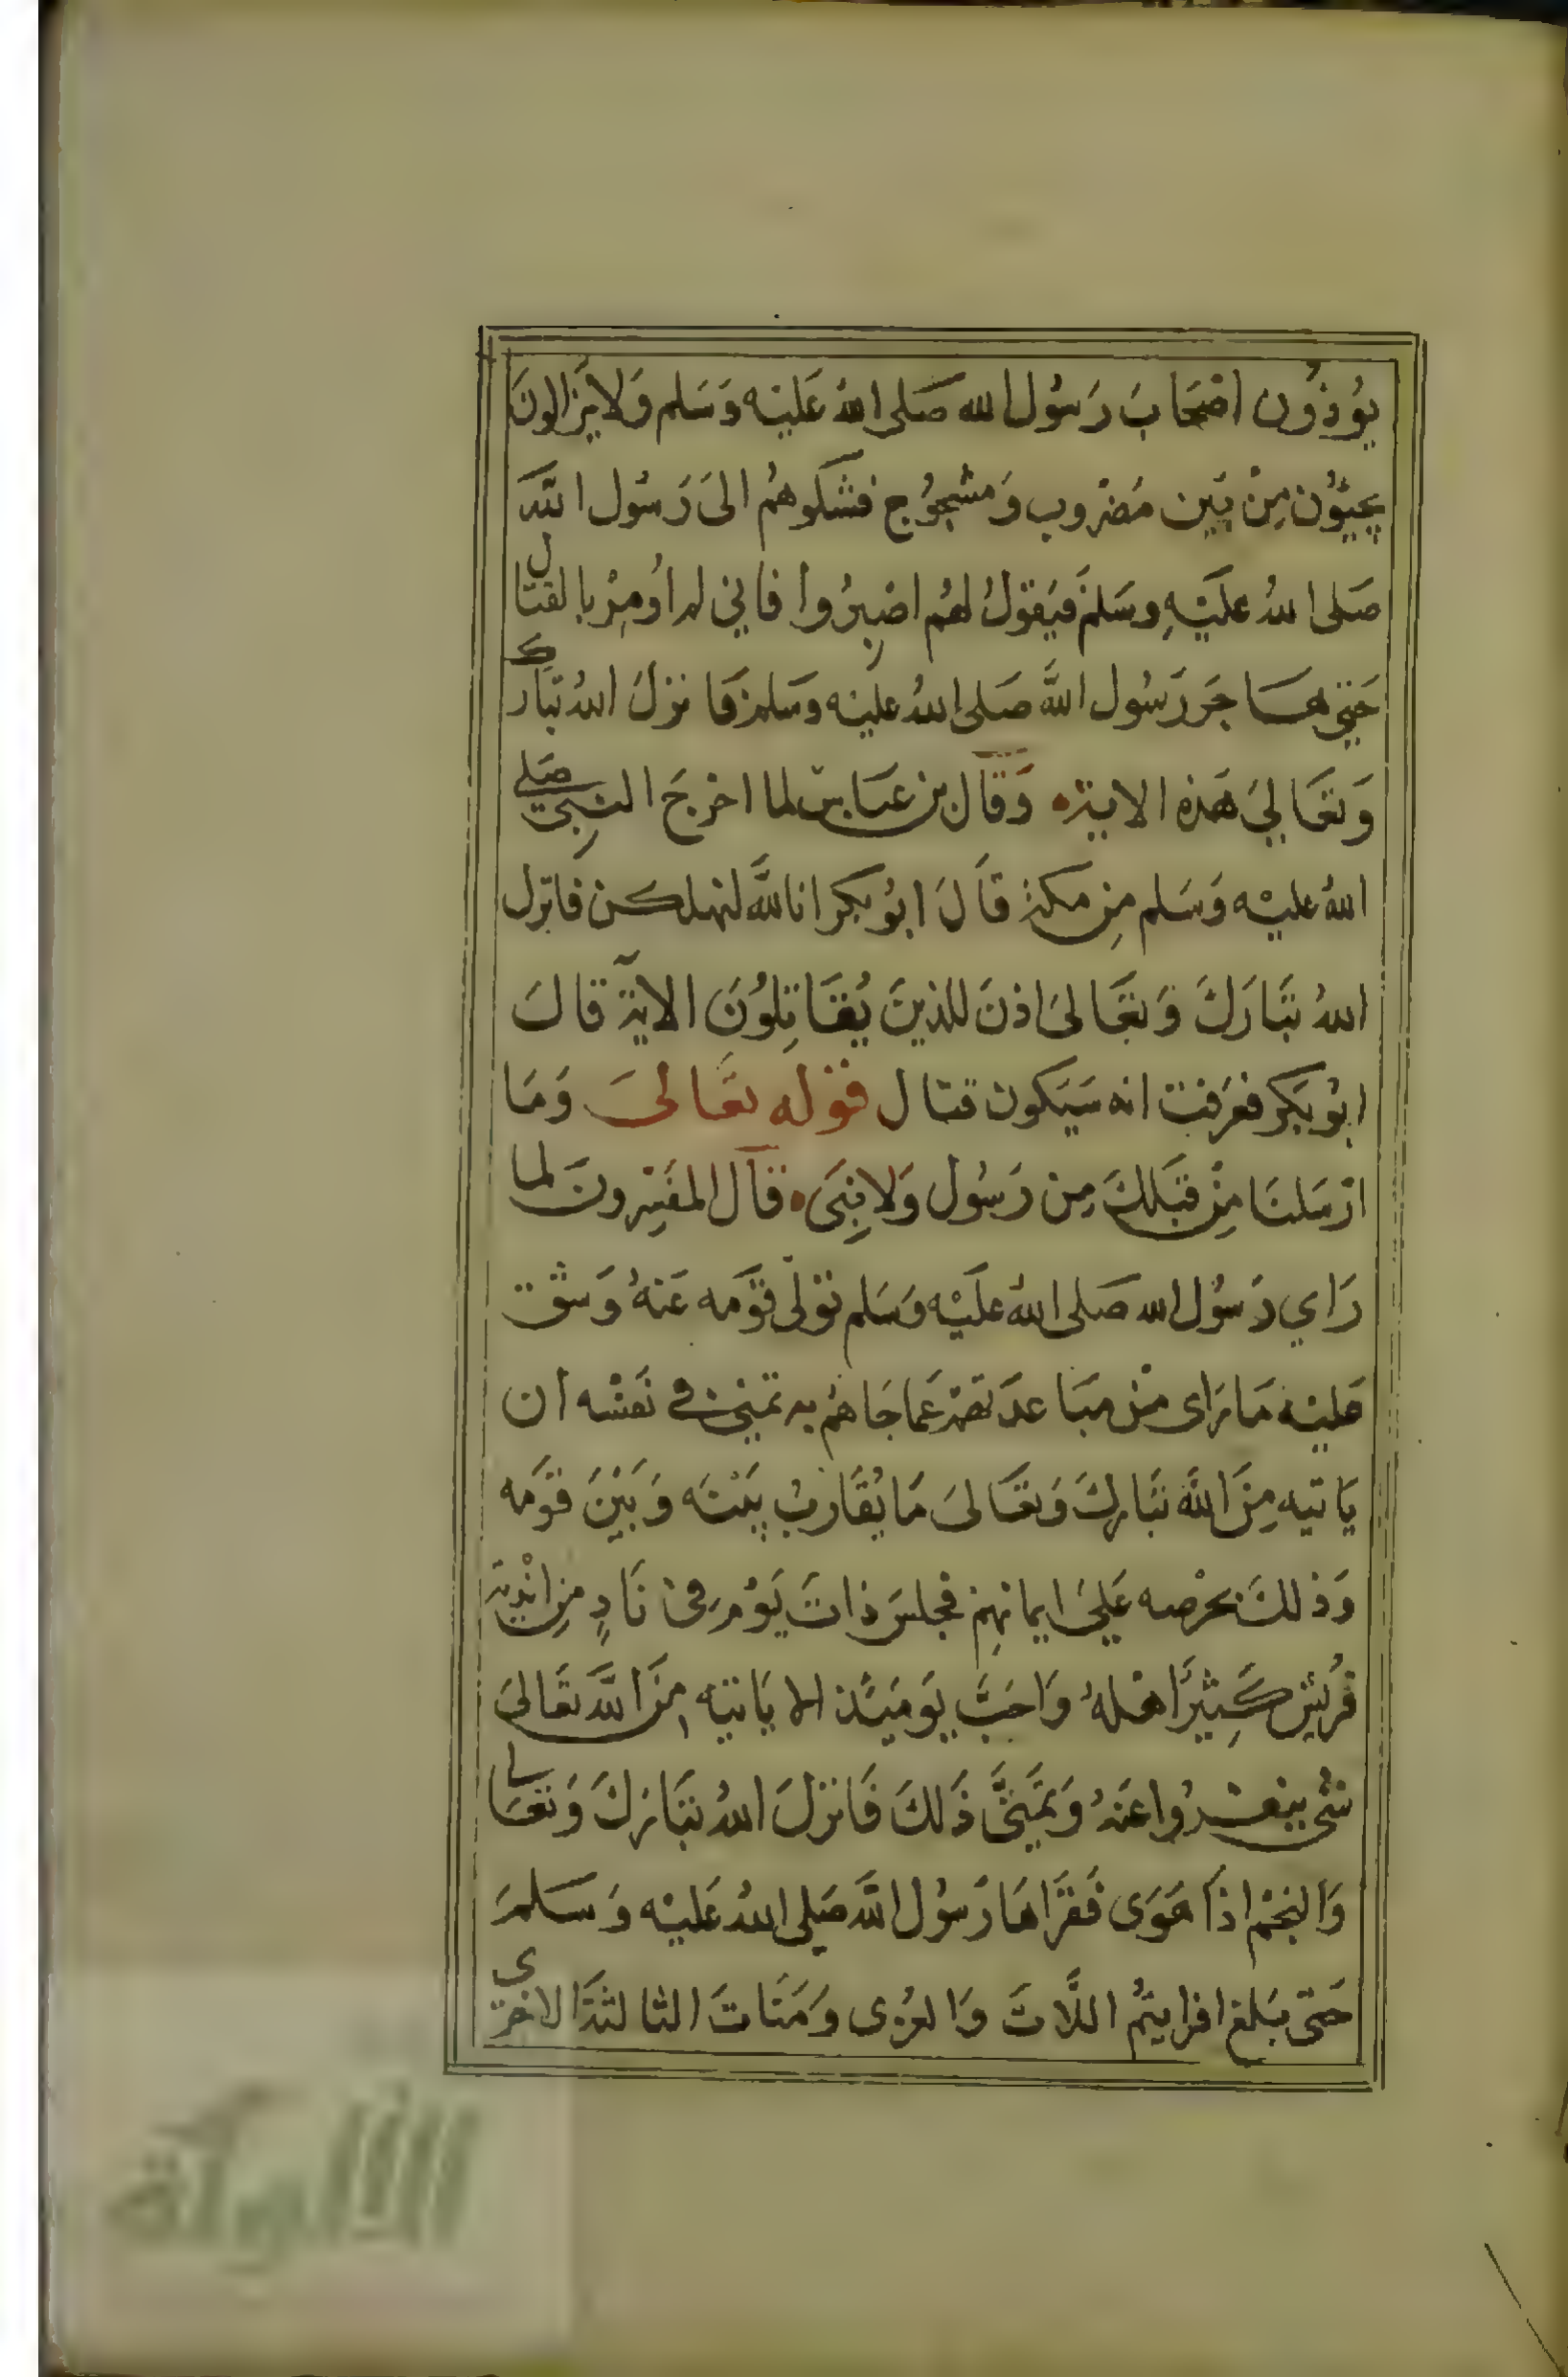 يؤذون اصْحَابَ رَسُول الله صَلى اللهُ عَليْه وَسَلم وَلا يَزالونَ
يجيؤُن مِنْ بَين مَضْروب وَمشجوُج فشكوهُم الىَ رَسُول اللَّه
صَلى اللهُ عَليْهِ وسَلمَ فيَقولُ لهُم اصْبِرُوا فاني لم أومِرْ بالقتال
حَتي هَاجَر رَسُول اللَّه صَلى اللهُ عليْه وسَلم فانزلَ اللهُ تبَارك
وَتعَاليَ هَذه الاية وَقال بن عبَاس لما اخرجَ النبِي صَلى
اللهُ عليْه وَسَلم مِن مكة قالَ ابُو بكر انا للَّه لنهلكن فانزل
اللهُ تبَارَكَ وَتعَالىَ اذنَ للذينَ يُقَاتِلوُنَ الآية قالَ
ابُو بَكر فعَرَفت انه سَيَكون قتال قوله تعَالىَ وَمَا
ارْسَلنَا مِنْ قبَلكَ مِن رَسُول وَلا نِبَى قال المفَسِرونَ لما
رَاي رَسُول الله صَلى اللهُ عليْه وَسَلم تولّى قوَمه عَنهُ وَشق
عليْه مَا رَاى مْن مبَاعدَتهمْ عَما جَاهُم به تمني في نَفسْه ان
يَاتيه مِنَ اللَّه تبَاركَ وَتعَالىَ مَا يُقَاربُ بيَنْه وَبَيْنَ قوَمه
وَذلكَ بحرْصه عَلىَ ايمانهِم فجلسَ ذاتَ يَوْم في نَادٍ مِن انْدية
قرُيْش كَثِيرًا اهْلهُ وَاحَبَّ يَومَئذ الا يَاتيه مِنَ اللَّه تعَالىَ
شىُ ينفْروُا عَنهُ وَتمَنىَّ ذَلكَ فَانزلَ اللهُ تبَاركَ وَتعَالي
وَالنجْم اذَا هَوَى فَقرَاهَا رَسُول اللَّه صَلى اللهُ عَليْه وَسَلمَ
حَتىّ بَلغ افرايتمُ اللَّاتَ وَالعزُى وَمَنَاتَ الثالثةَ الاخرى
الألوكة